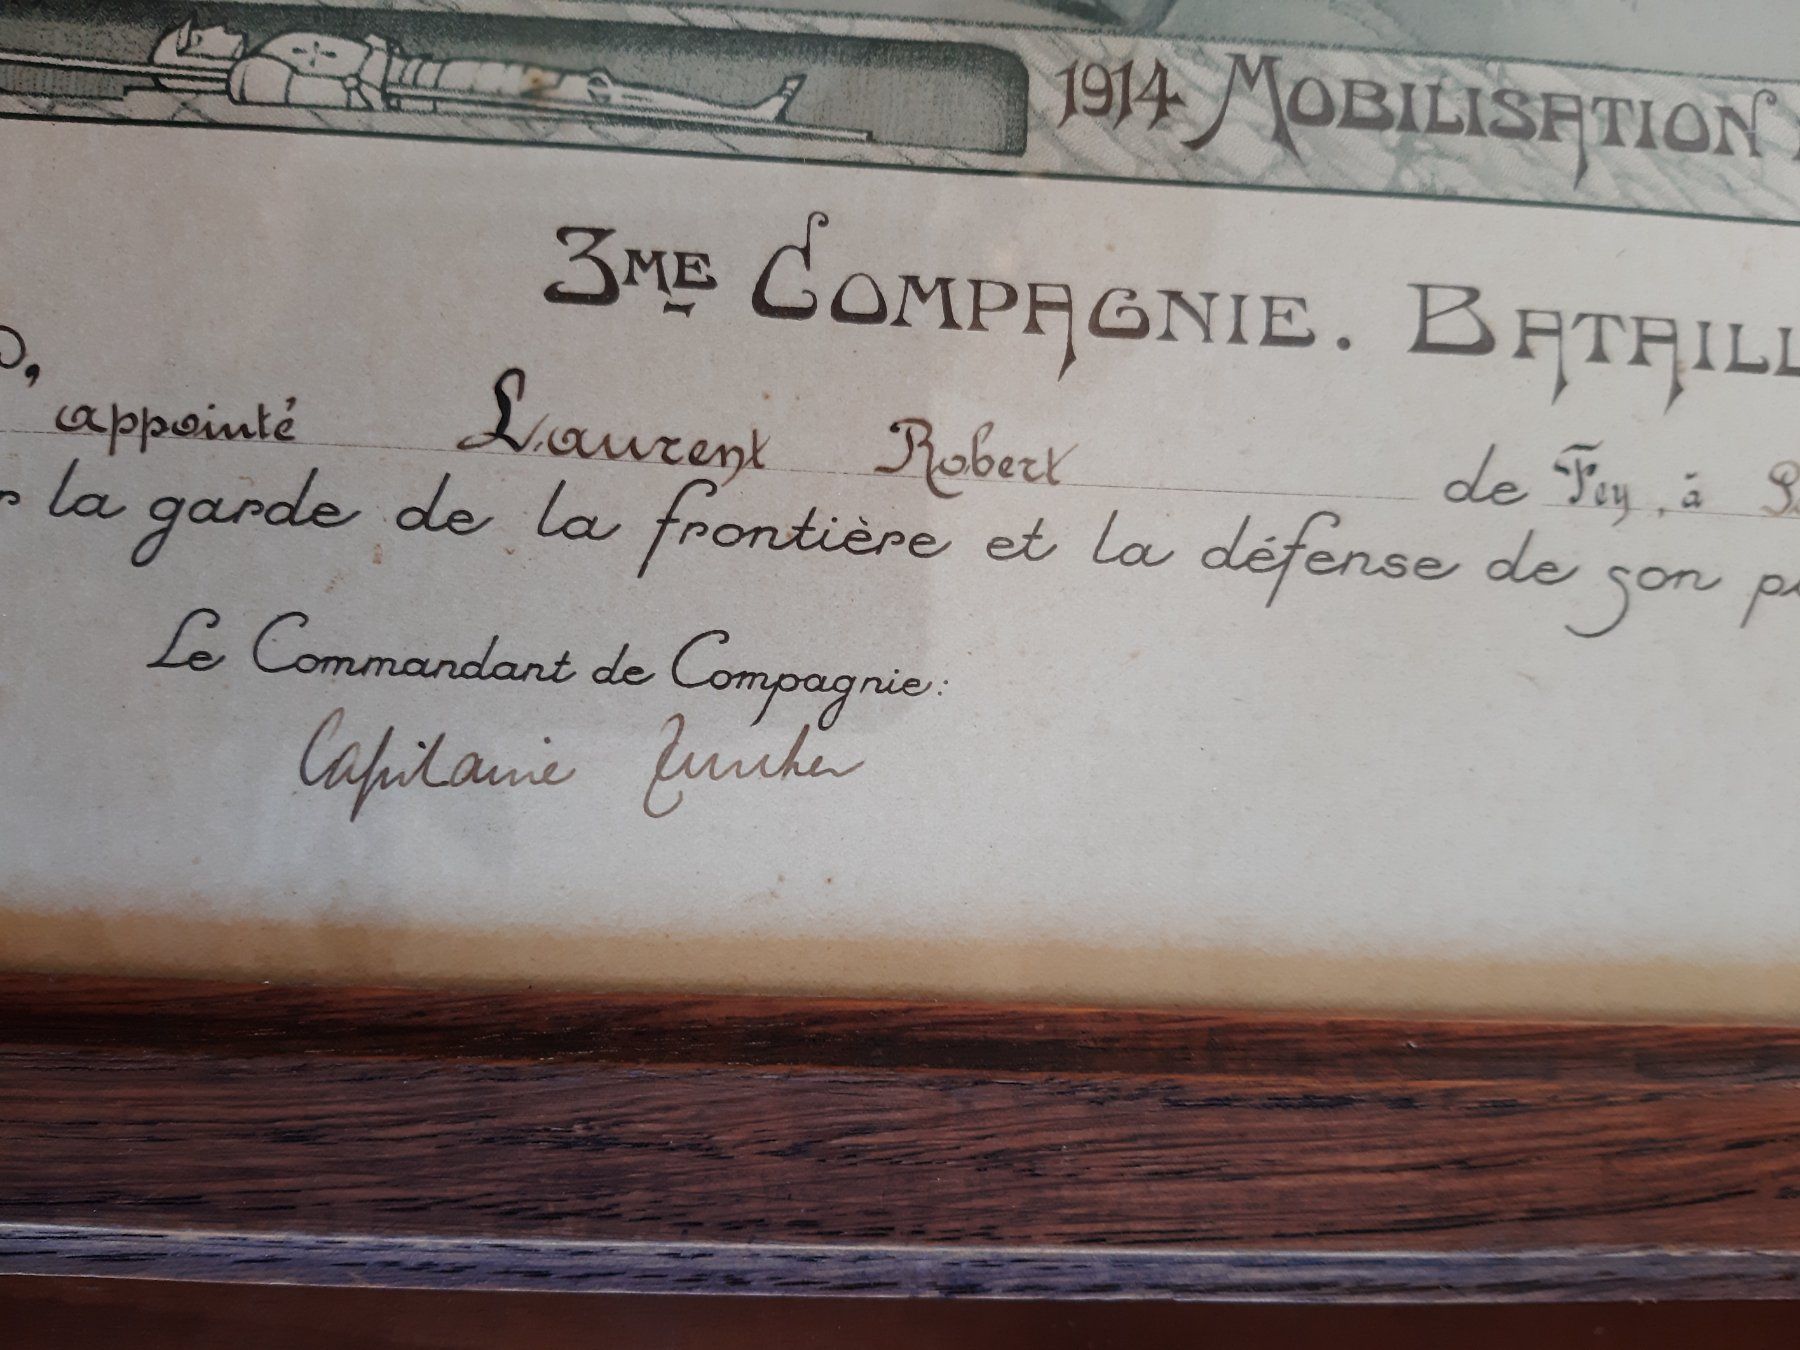 1914 MOBILISATION
3ME COMPAGNIE. BATAILL
appointé Laurent Robert de Fey, à
la garde de la frontière et la défense de son
Le Commandant de Compagnie:
Capitaine